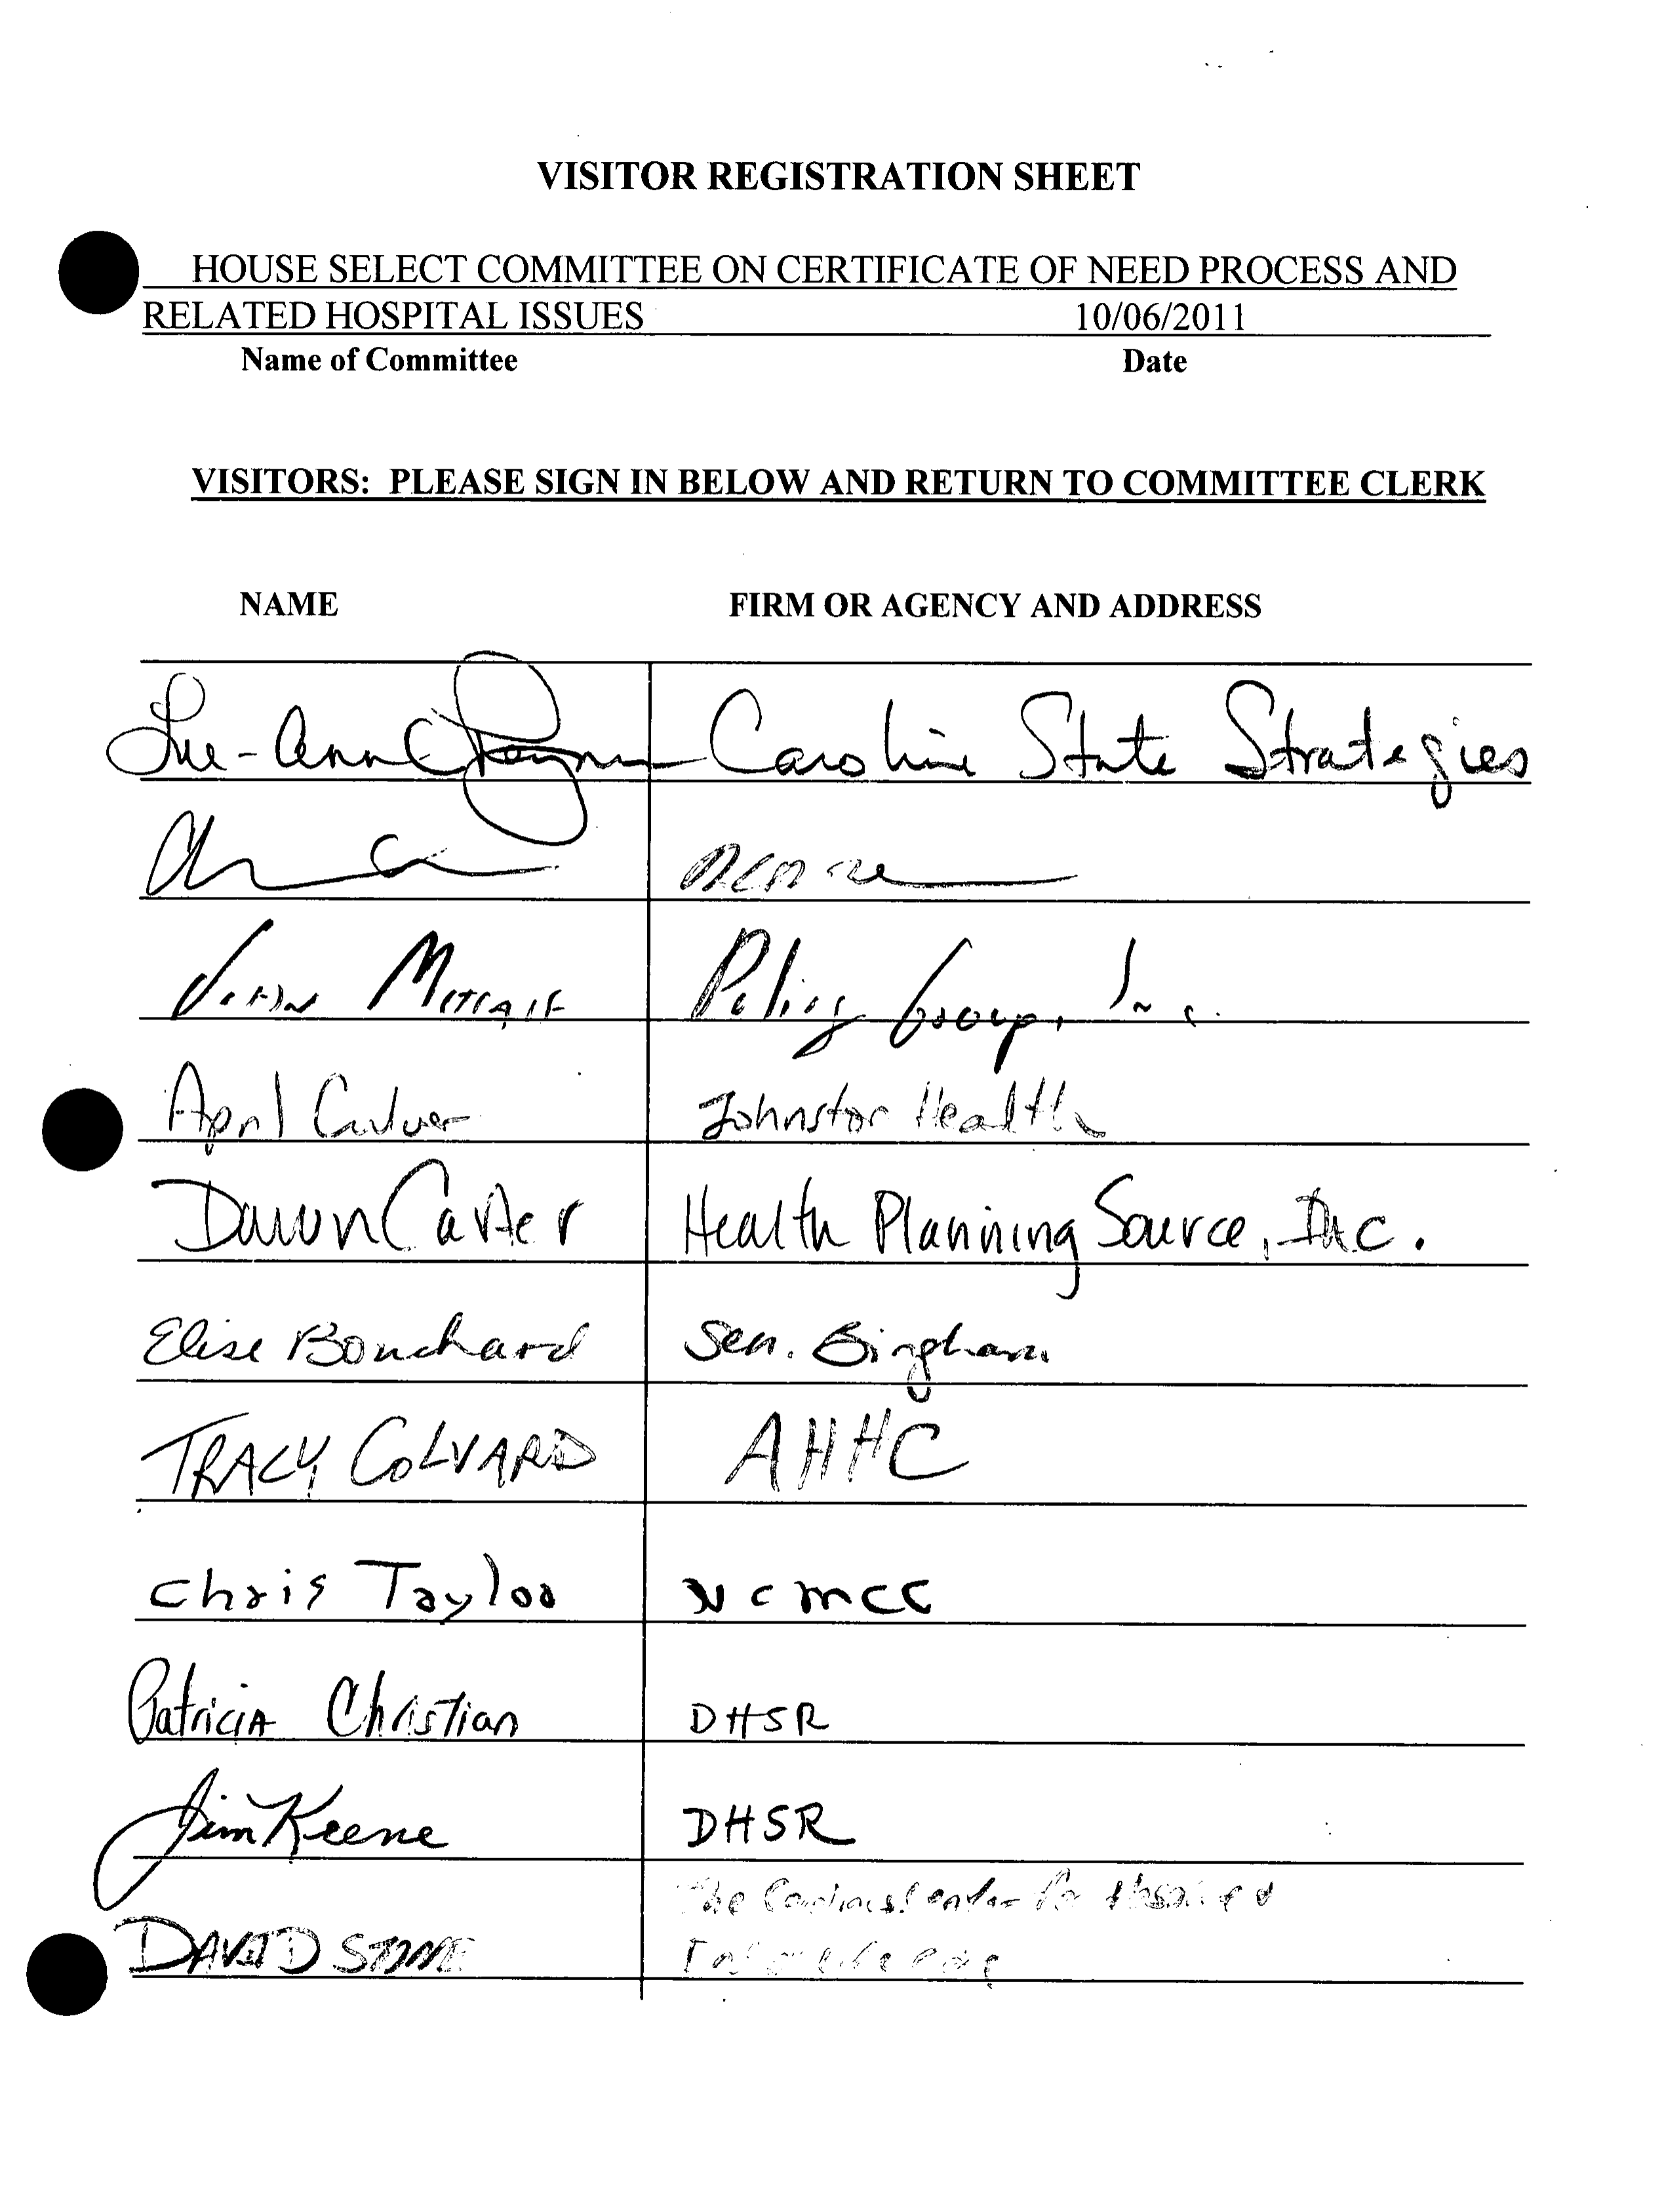 VISITOR REGISTRATION SHEET
HOUSE SELECT COMMITTEE ON CERTIFICATE OF NEED PROCESS AND
RELATED HOSPITAL ISSUES 10/06/2011
Name of Committee Date
VISITORS: PLEASE SIGN IN BELOW AND RETURN TO COMMITTEE CLERK
NAME FIRM OR AGENCY AND ADDRESS
Sue-Ann Carolina State Strategies
John Metcalf Policy Group, Inc.
April Culver Johnston Health
Dawn Carter Health Planning Source, Inc.
Elise Bouchard Sen. Bingham
TRACY COLVARD AHHC
Chris Taylor NCMCC
Patricia Christian DHSR
Jim Keene DHSR
The Carolinas Center for Hospice &
DAVID STONE